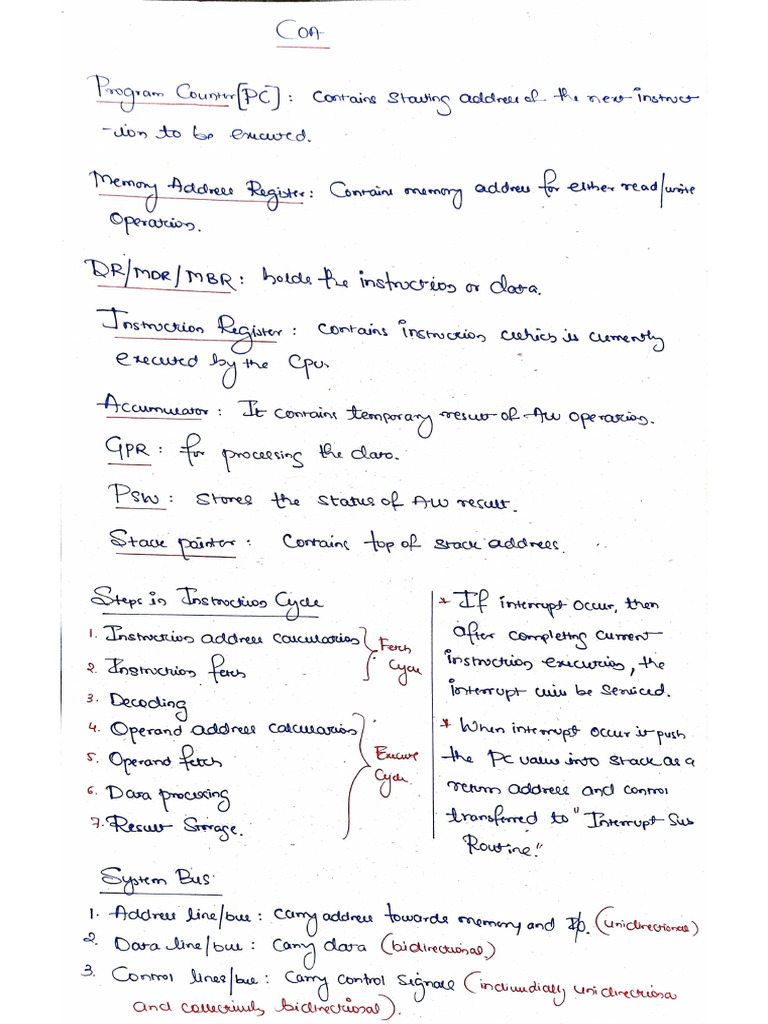 COA
Program Counter[PC]: Contains starting address of the next instruct
-ion to be executed.
Memory Address Register: Contains memory address for either read/write
Operation.
DR/MDR/MBR: holds the instruction or data.
Instruction Register: contains instruction which is currently
executed by the CPU.
Accumulator: It contains temporary result of ALU operation.
GPR: for processing the data.
PSW: stores the status of ALU result.
Stack pointer: Contains top of stack address.
Steps in Instruction Cycle
1. Instruction address calculation
2. Instruction fetch
Fetch
Cycle
3. Decoding
4. Operand address calculation
5. Operand fetch
6. Data processing
7. Result Storage.
Execute
Cycle.
* If interrupt occur, then
after completing current
instruction execution, the
interrupt will be serviced.
* When interrupt occur it push
the PC value into stack as a
return address and control
transferred to "Interrupt Sub
Routine."
System Bus
1. Address line/bus: Carry address towards memory and I/O. (unidirectional)
2. Data line/bus: Carry data (bidirectional)
3. Control lines/bus: Carry control signals (individually unidirectional
and collectively bidirectional).